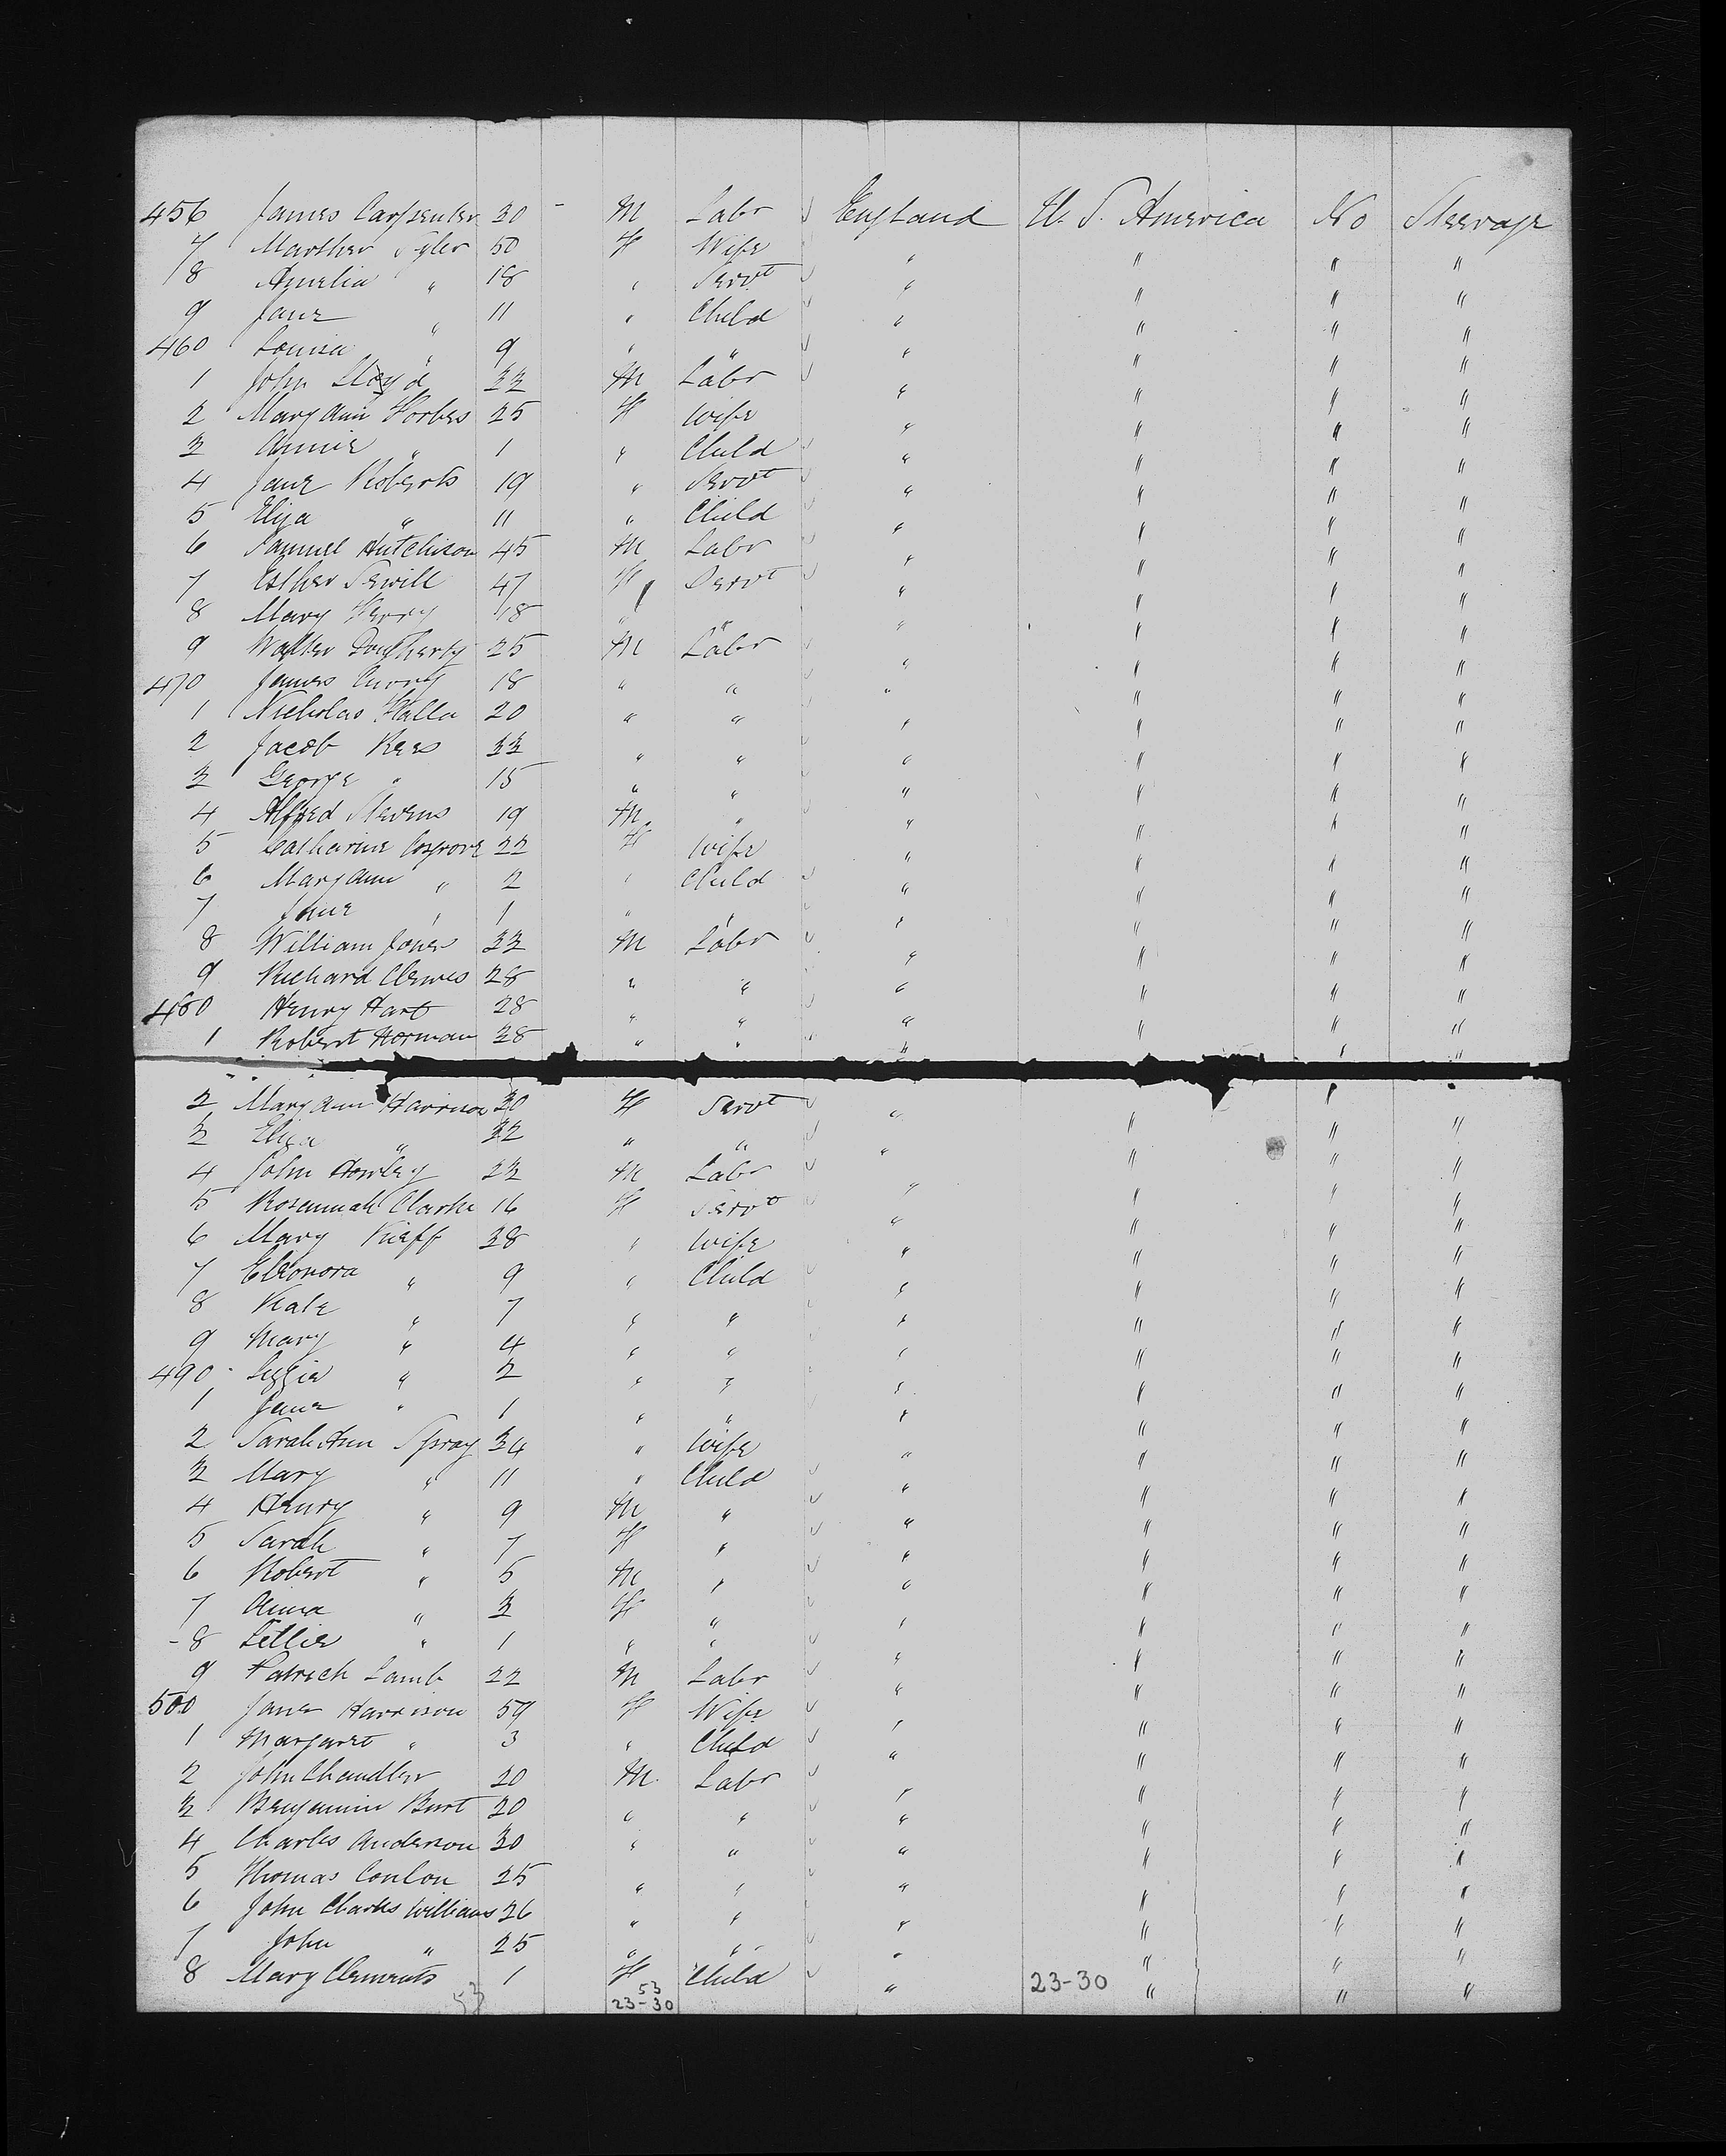 456 James Carpenter 30 - M Labr England U. S. America No Steerage
7 Marther Tyler 50 F Wife " " " "
8 Amelia " 18 " Servt " " " "
9 Jane " 11 " Child " " " "
460 Louisa " 9 " " " " " "
1 John Lloyd 33 M Labr " " " "
2 Mary Ann Forbes 25 F Wife " " " "
3 Annie " 1 " Child " " " "
4 Jane Roberts 19 " Servt " " " "
5 Eliza " 11 " Child " " " "
6 Samuel Hutchison 45 M Labr " " " "
7 Esther Sewill 47 F Servt " " " "
8 Mary 18 " " " " " "
9 Walter Dougherty 25 M Labr " " " "
470 James Curry 18 " " " " " "
1 Nicholas Halla 20 " " " " " "
2 Jacob Rees 33 " " " " " "
3 George " 15 " " " " " "
4 Alfred Stevens 19 M " " " " "
5 Catharine Cosgrove 22 F Wife " " " "
6 Mary Ann " 2 " Child " " " "
7 Jane " 1 " " " " " "
8 William Jones 33 M Labr " " " "
9 Richard Clewes 28 " " " " " "
480 Henry Hart 28 " " " " " "
1 Robert Horman 38 " " " " " "
2 Mary Ann Harrison 30 F Servt " " " "
3 Eliza " 32 " " " " " "
4 John Howley 23 M Labr " " " "
5 Rosannah Clarke 16 F Servt " " " "
6 Mary Kieff 38 " Wife " " " "
7 Eleonora " 9 " Child " " " "
8 Kate " 7 " " " " " "
9 Mary " 4 " " " " " "
490 Lizzie " 2 " " " " " "
1 Jane " 1 " " " " " "
2 Sarah Ann Spray 34 " Wife " " " "
3 Mary " 11 " Child " " " "
4 Henry " 9 M " " " " "
5 Sarah " 7 F " " " " "
6 Robert " 5 M " " " " "
7 Anna " 3 F " " " " "
8 Lettie " 1 " " " " " "
9 Patrick Lamb 22 M Labr " " " "
500 Jane Harrison 59 F Wife " " " "
1 Margaret " 3 " Child " " " "
2 John Chandler 20 M Labr " " " "
3 Benjamin Burt 20 " " " " " "
4 Charles Anderson 30 " " " " " "
5 Thomas Conlon 25 " " " " " "
6 John Charles Williams 36 " " " " " "
7 John " 25 " " " " " "
8 Mary Clements 1 F Child " " " "
53 53 23-30
23-30